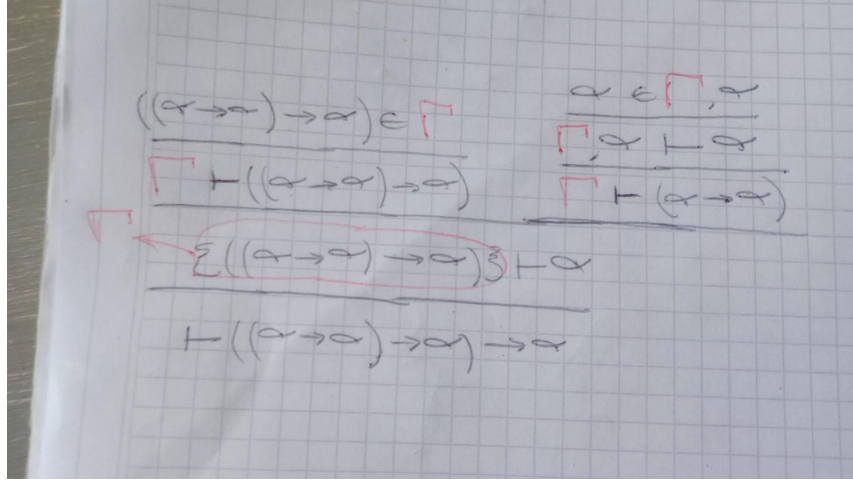 ((α→α)→α) ∈ Γ
α ∈ Γ, α
Γ, α ⊢ α
Γ ⊢ ((α→α)→α)
Γ ⊢ (α→α)
Γ
{((α→α)→α)} ⊢ α
⊢ ((α→α)→α)→α